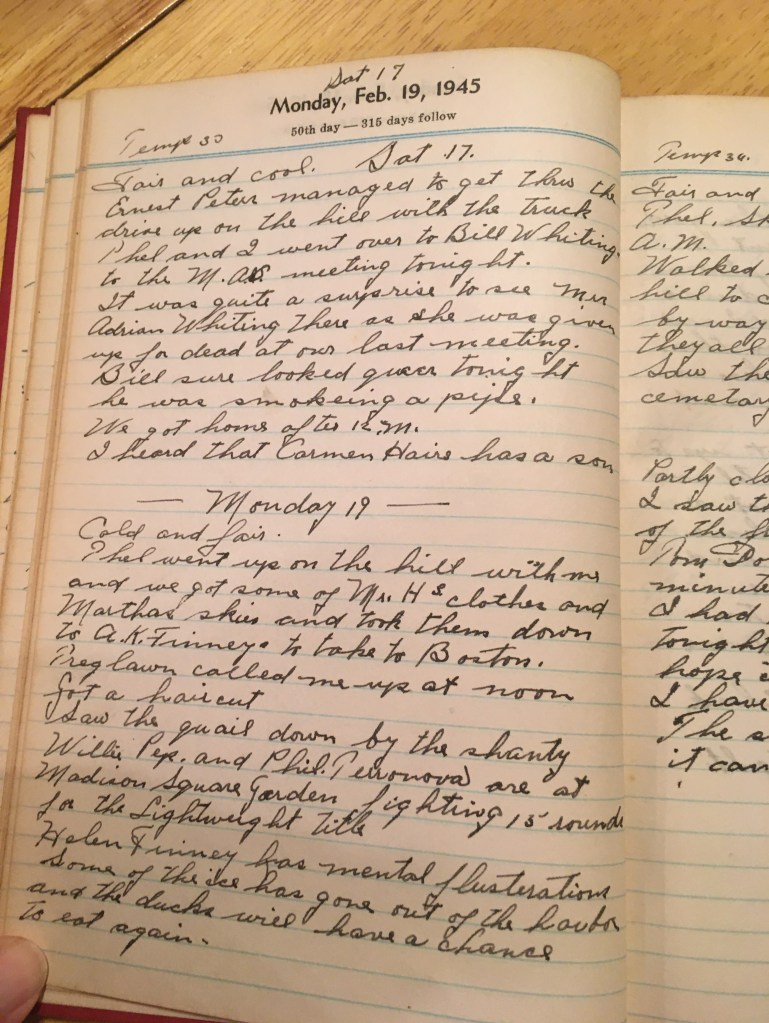 Sat 17
Monday, Feb. 19, 1945
50th day — 315 days follow
Temp 30
Fair and cool. Sat 17.
Ernest Peter managed to get thru the
drive up on the hill with the truck
Phel and I went over to Bill Whiting
to the M.A.S. meeting tonight.
It was quite a surprise to see Mrs
Adrian Whiting there as she was given
up for dead at our last meeting.
Bill sure looked queer tonight
he was smokeing a pipe.
We got home after 12 M.
I heard that Carmen Haire has a son
— Monday 19 —
Cold and fair.
Phel went up on the hill with me
and we got some of Mr. Hs clothes and
Marthas skies and took them down
to A.K. Finneys to take to Boston.
Preglawn called me up at noon
Got a haircut
Saw the quail down by the shanty
Willie Pep. and Phil. Terronova are at
Madison Square Garden fighting 15 rounds
for the Lightweight title
Helen Finney has mental flusterations
Some of the ice has gone out of the harbor
and the ducks will have a chance
to eat again.
Temp 34.
Fair and
Phel.
A.M.
Walked
hill to
by way
they all
Saw the
cemetary
Partly clo
I saw th
of the
Tom Do
minute
I had
tonight
hope
I have
The s
it can